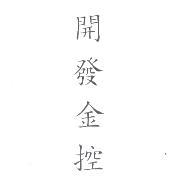 開發金控